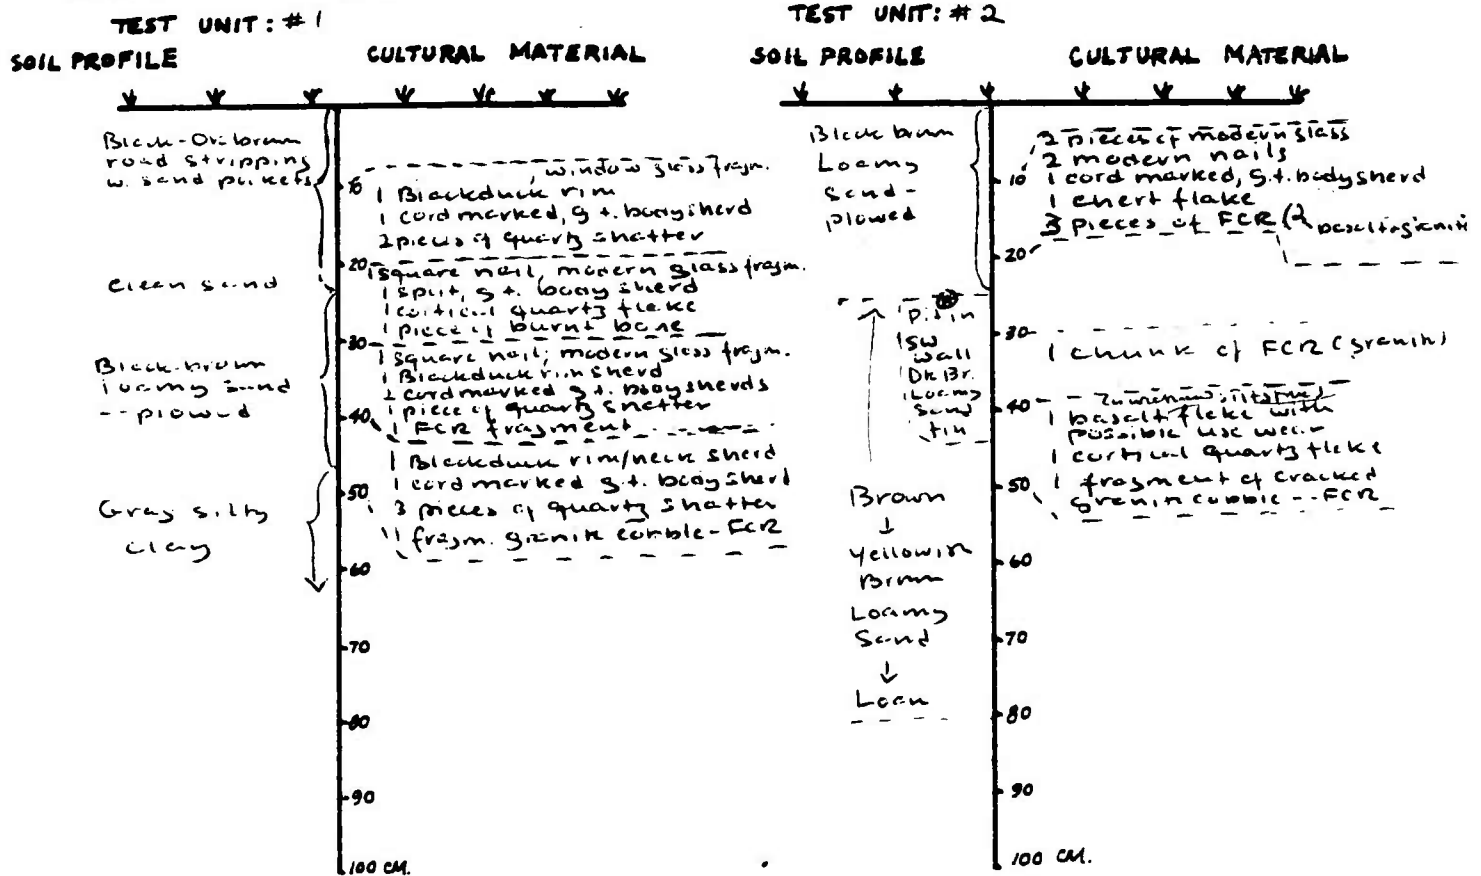 TEST UNIT: #1
SOIL PROFILE
CULTURAL MATERIAL
Black-
road stripping
w. sand pockets
Clean sand
Black-brown
loamy sand
--plowed
Gray silty
clay
10
20
30
40
50
60
70
80
90
100 CM.
window glass fragm.
1 Blackduck rim
1 cord marked, g.t. bodysherd
2 pieces of quartz shatter
1 square nail, modern glass fragm.
1 split, g.t. body sherd
1 cortical quartz flake
1 piece of burnt bone
1 square nail; modern glass fragm.
1 Blackduck rimsherd
2 cordmarked g.t. bodysherds
1 piece of quartz shatter
1 FCR fragment
1 Blackduck rim/neck sherd
1 cord marked g.t. bodysherd
3 pieces of quartz shatter
1 fragm. granite cobble-FCR
TEST UNIT: #2
SOIL PROFILE
CULTURAL MATERIAL
Black brown
Loamy
Sand-
plowed
Pit in
SW
Wall
Dk Br.
Loamy
Sand
Brown
↓
Yellowish
Brown
Loamy
Sand
↓
Loam
10
20
30
40
50
60
70
80
90
100 CM.
2 pieces of modern glass
2 modern nails
1 cord marked, g.t. bodysherd
1 chert flake
3 pieces of FCR (2
1 chunk of FCR (granite)
1 basalt flake with
possible use wear
1 cortical quartz flake
1 fragment of cracked
granite cobble--FCR